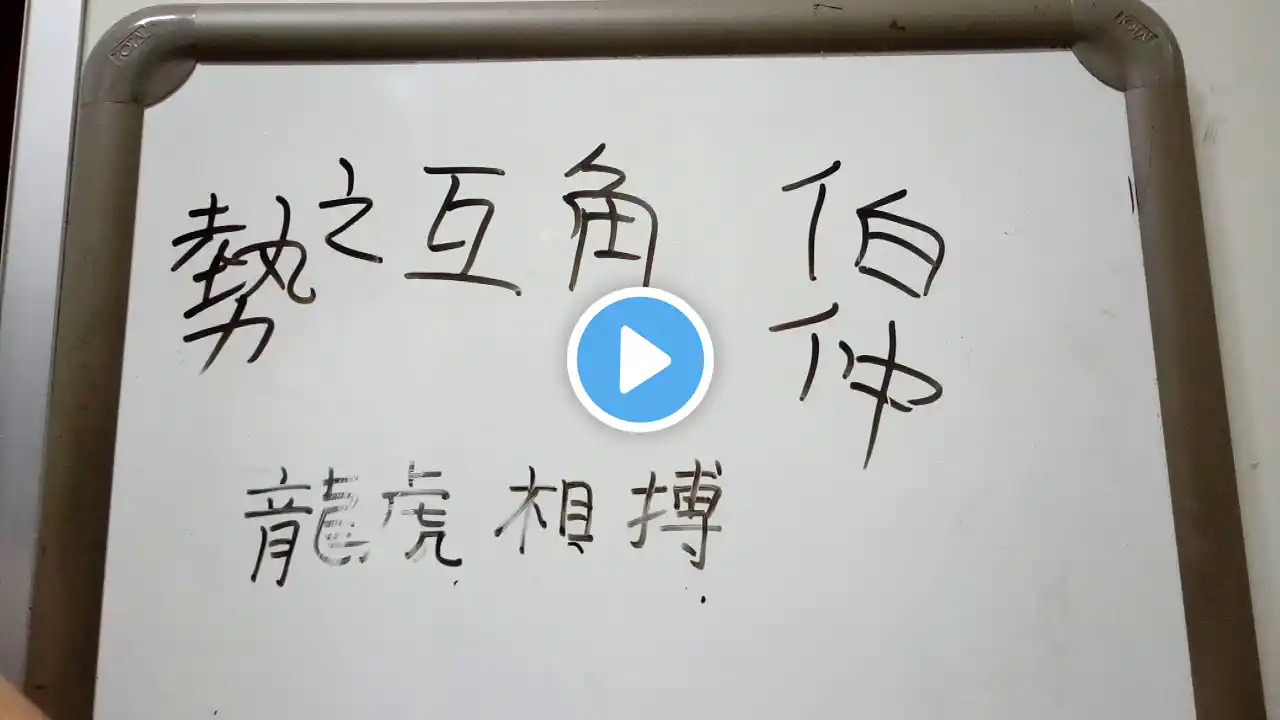 勢之互角 伯
仲
龍虎相搏